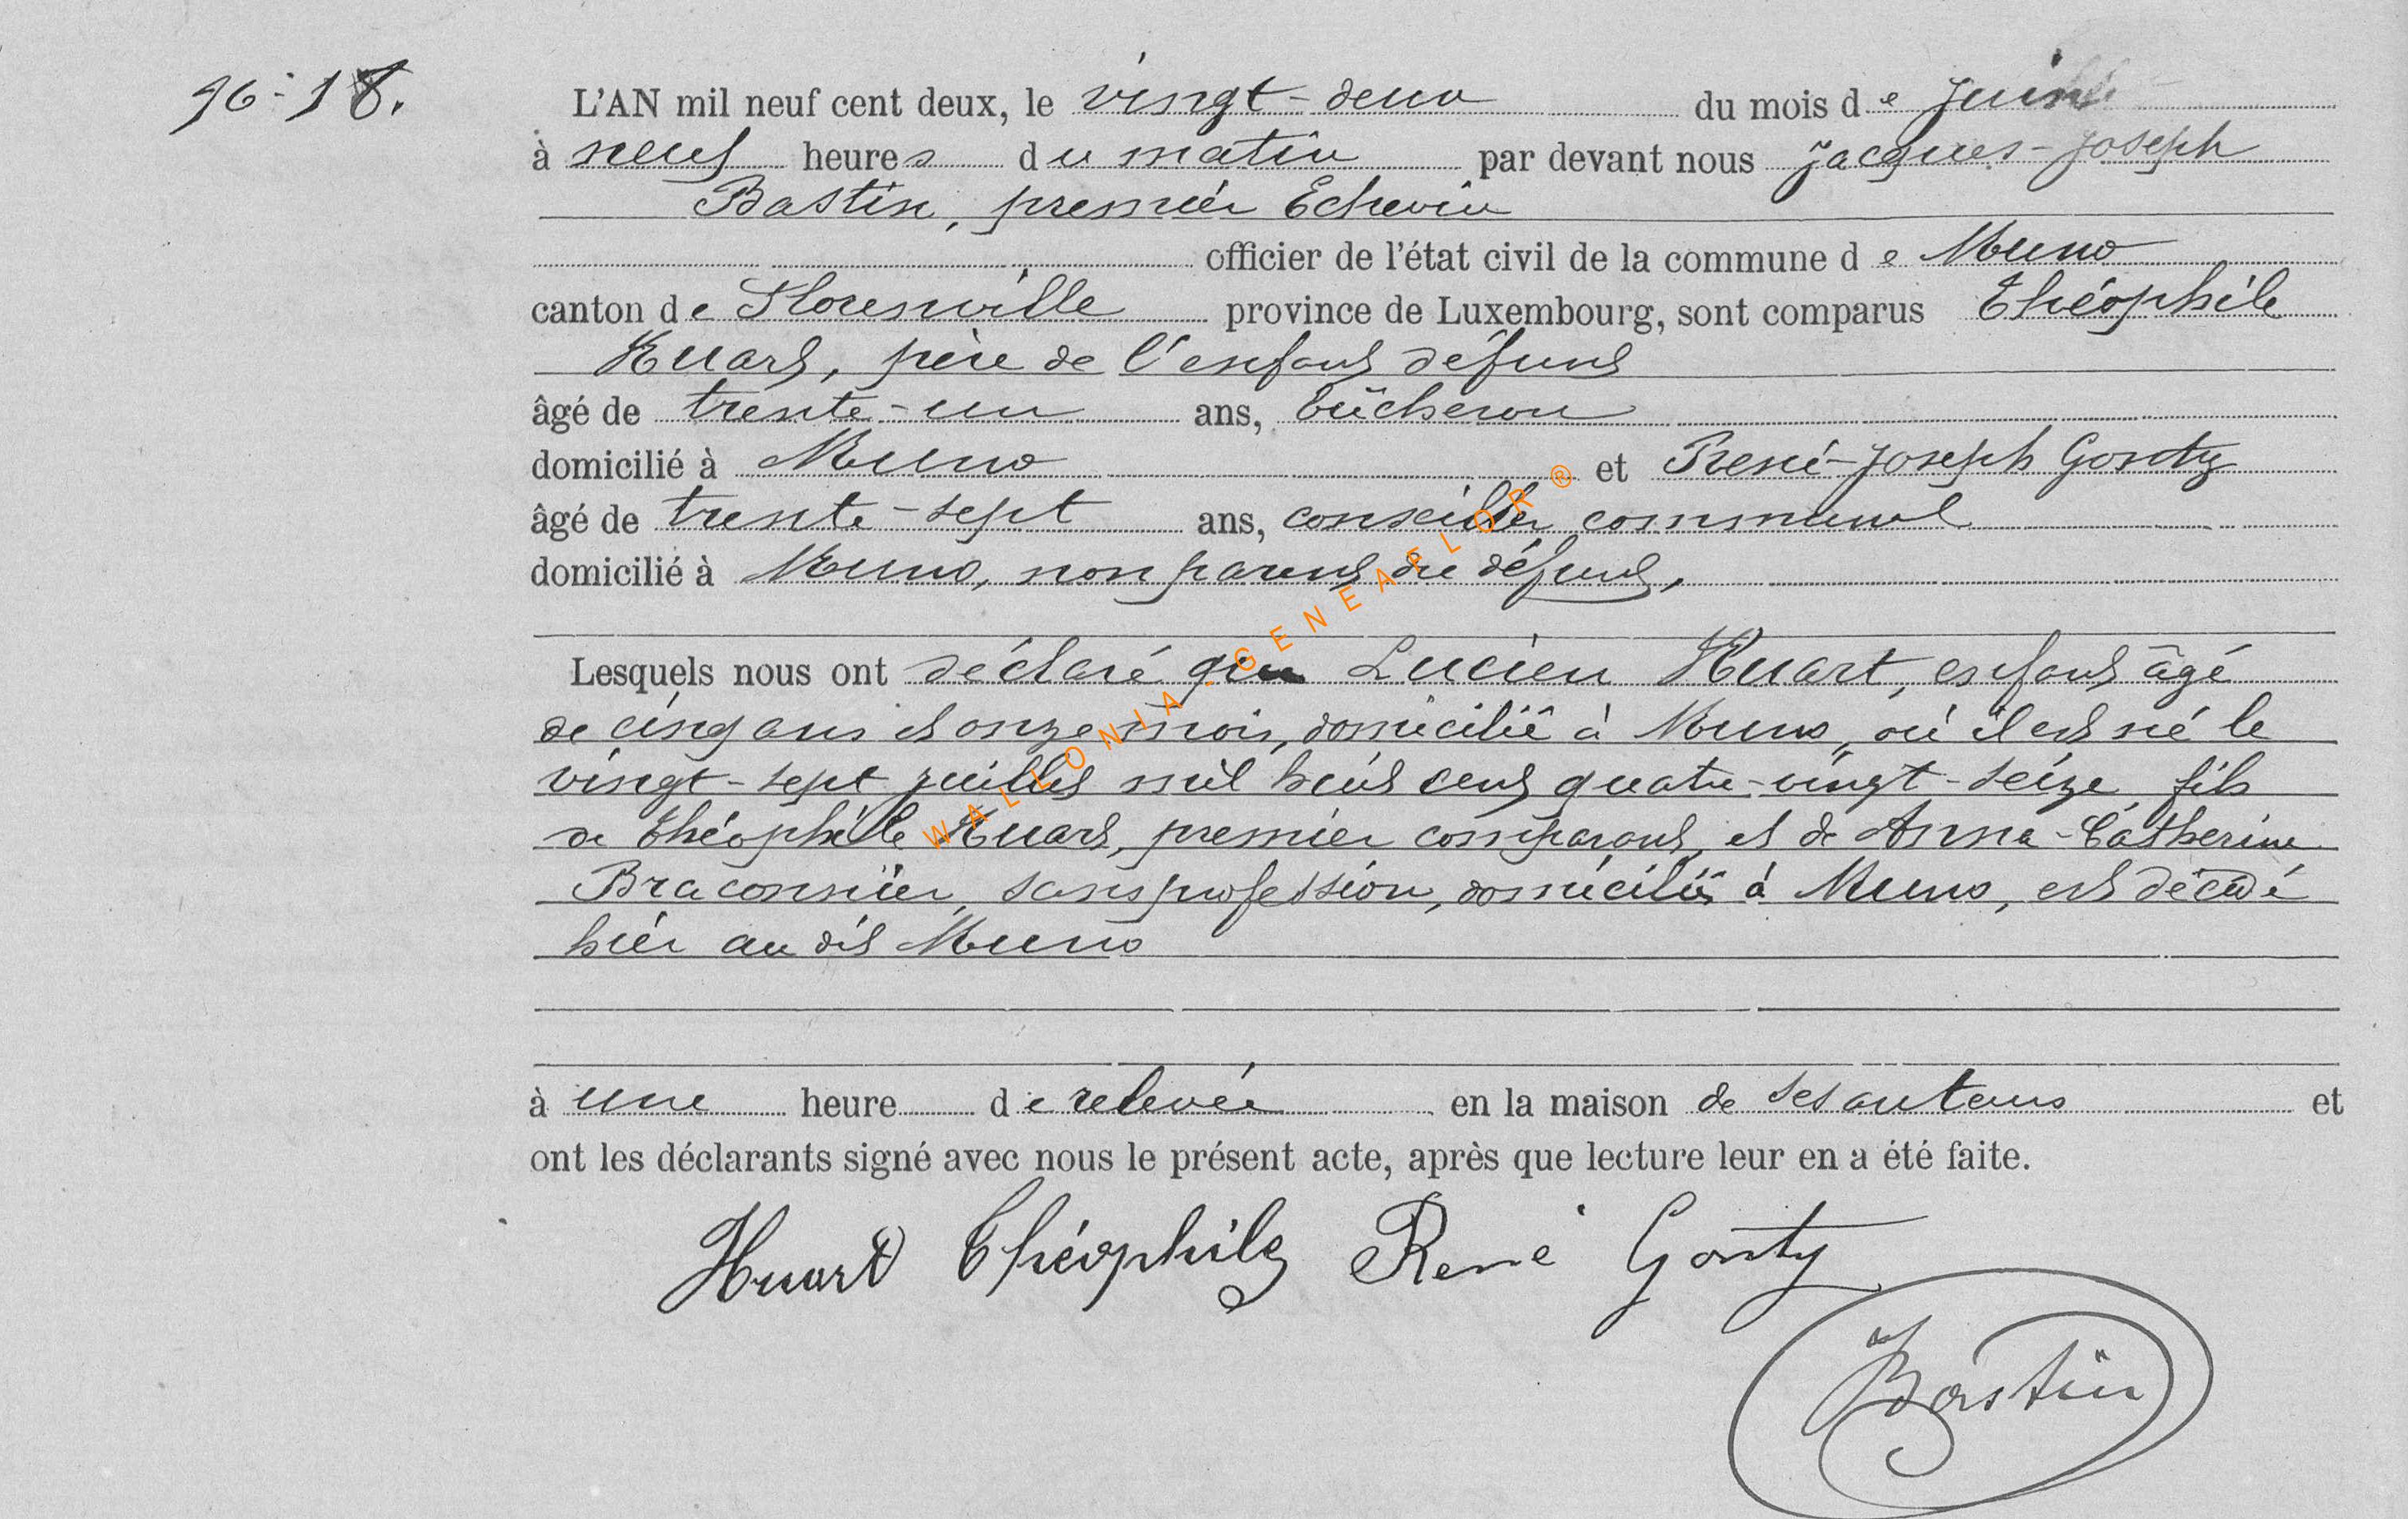 N° 18.
L'AN mil neuf cent deux, le vingt-deux du mois de Juin
à neuf heures du matin par devant nous Jacques-Joseph
Bastin, premier Echevin
officier de l'état civil de la commune de Muno
canton de Florenville province de Luxembourg, sont comparus Théophile
Huart, père de l'enfant défunt
âgé de trente-un ans, bûcheron
domicilié à Muno et René-Joseph Gonty
âgé de trente-sept ans, conseiller communal
domicilié à Muno, non parent du défunt,
Lesquels nous ont déclaré que Lucien Huart, enfant âgé
de cinq ans et onze mois, domicilié à Muno, où il est né le
vingt-sept juillet mil huit cent quatre-vingt-seize, fils
de Théophile Huart, premier comparant, et de Anna-Catherine
Braconnier, sans profession, domiciliés à Muno, est décédé
hier au dit Muno
à une heure de relevée en la maison de ses auteurs et
ont les déclarants signé avec nous le présent acte, après que lecture leur en a été faite.
Huart Théophile René Gonty
Bastin
WALLONIA-GENEAFLOR®